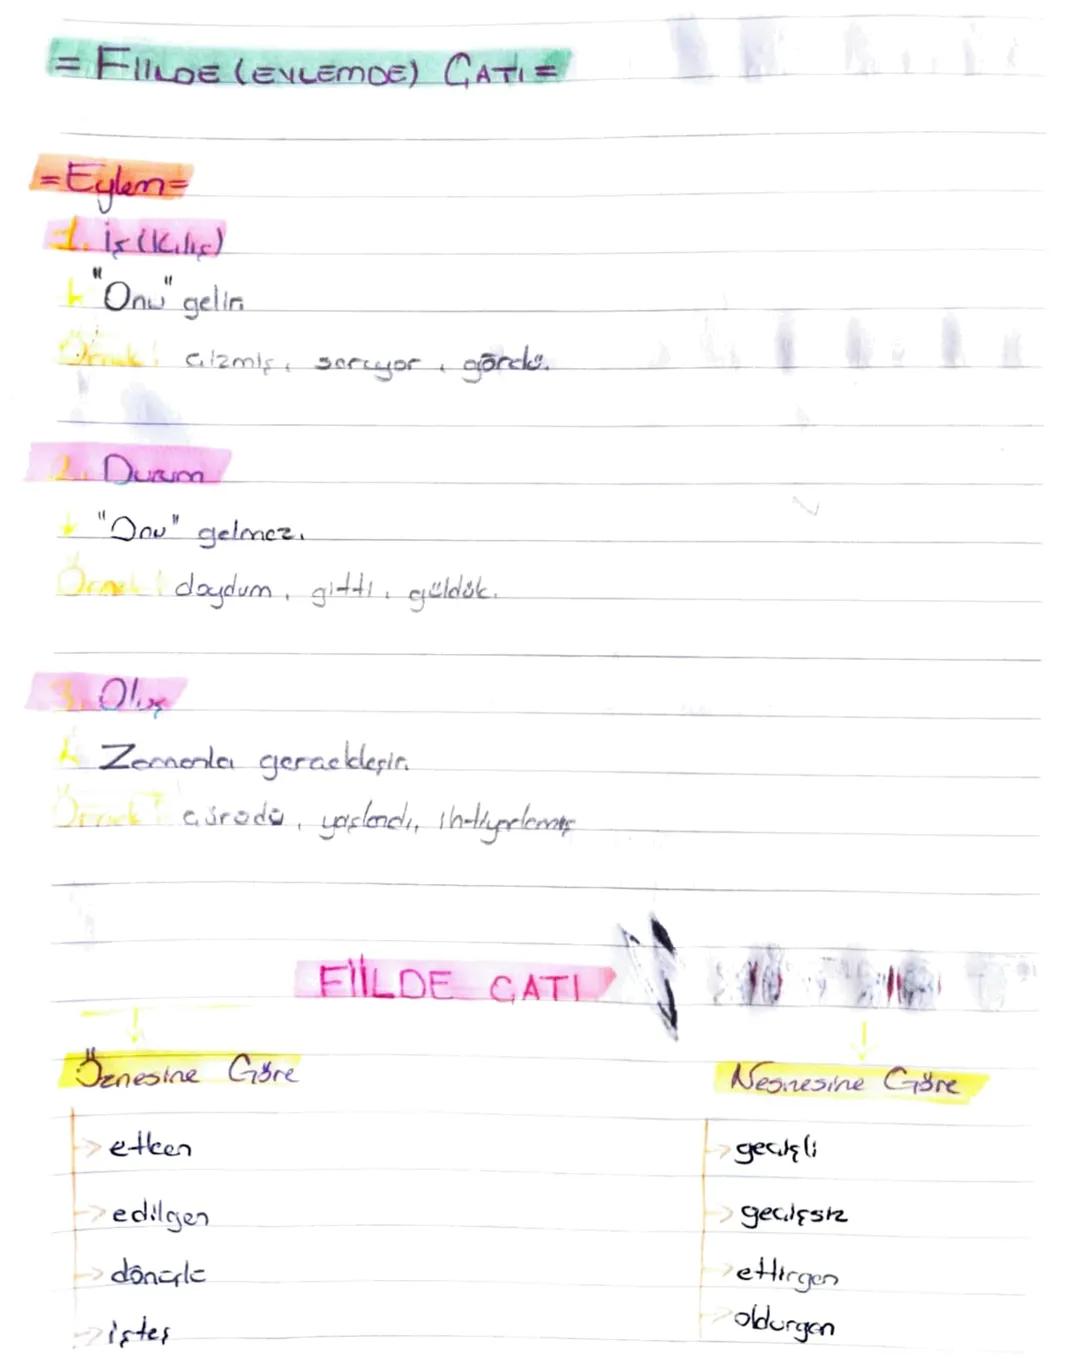 = FİİLDE (EYLEMDE) ÇATI =
=Eylem=
1. İş (Kılış)
"Onu" gelir.
Örnek: çizmiş, soruyor, gördü.
2. Durum
"Onu" gelmez.
Örnek: doydum, gitti, güldük.
3. Oluş
Zamanla gerçekleşir.
Örnek: çürüdü, yaşlandı, ihtiyarlamış
FİİLDE ÇATI
Öznesine Göre
Nesnesine Göre
etken
geçişli
edilgen
geçişsiz
dönüşlü
ettirgen
işteş
oldurgan